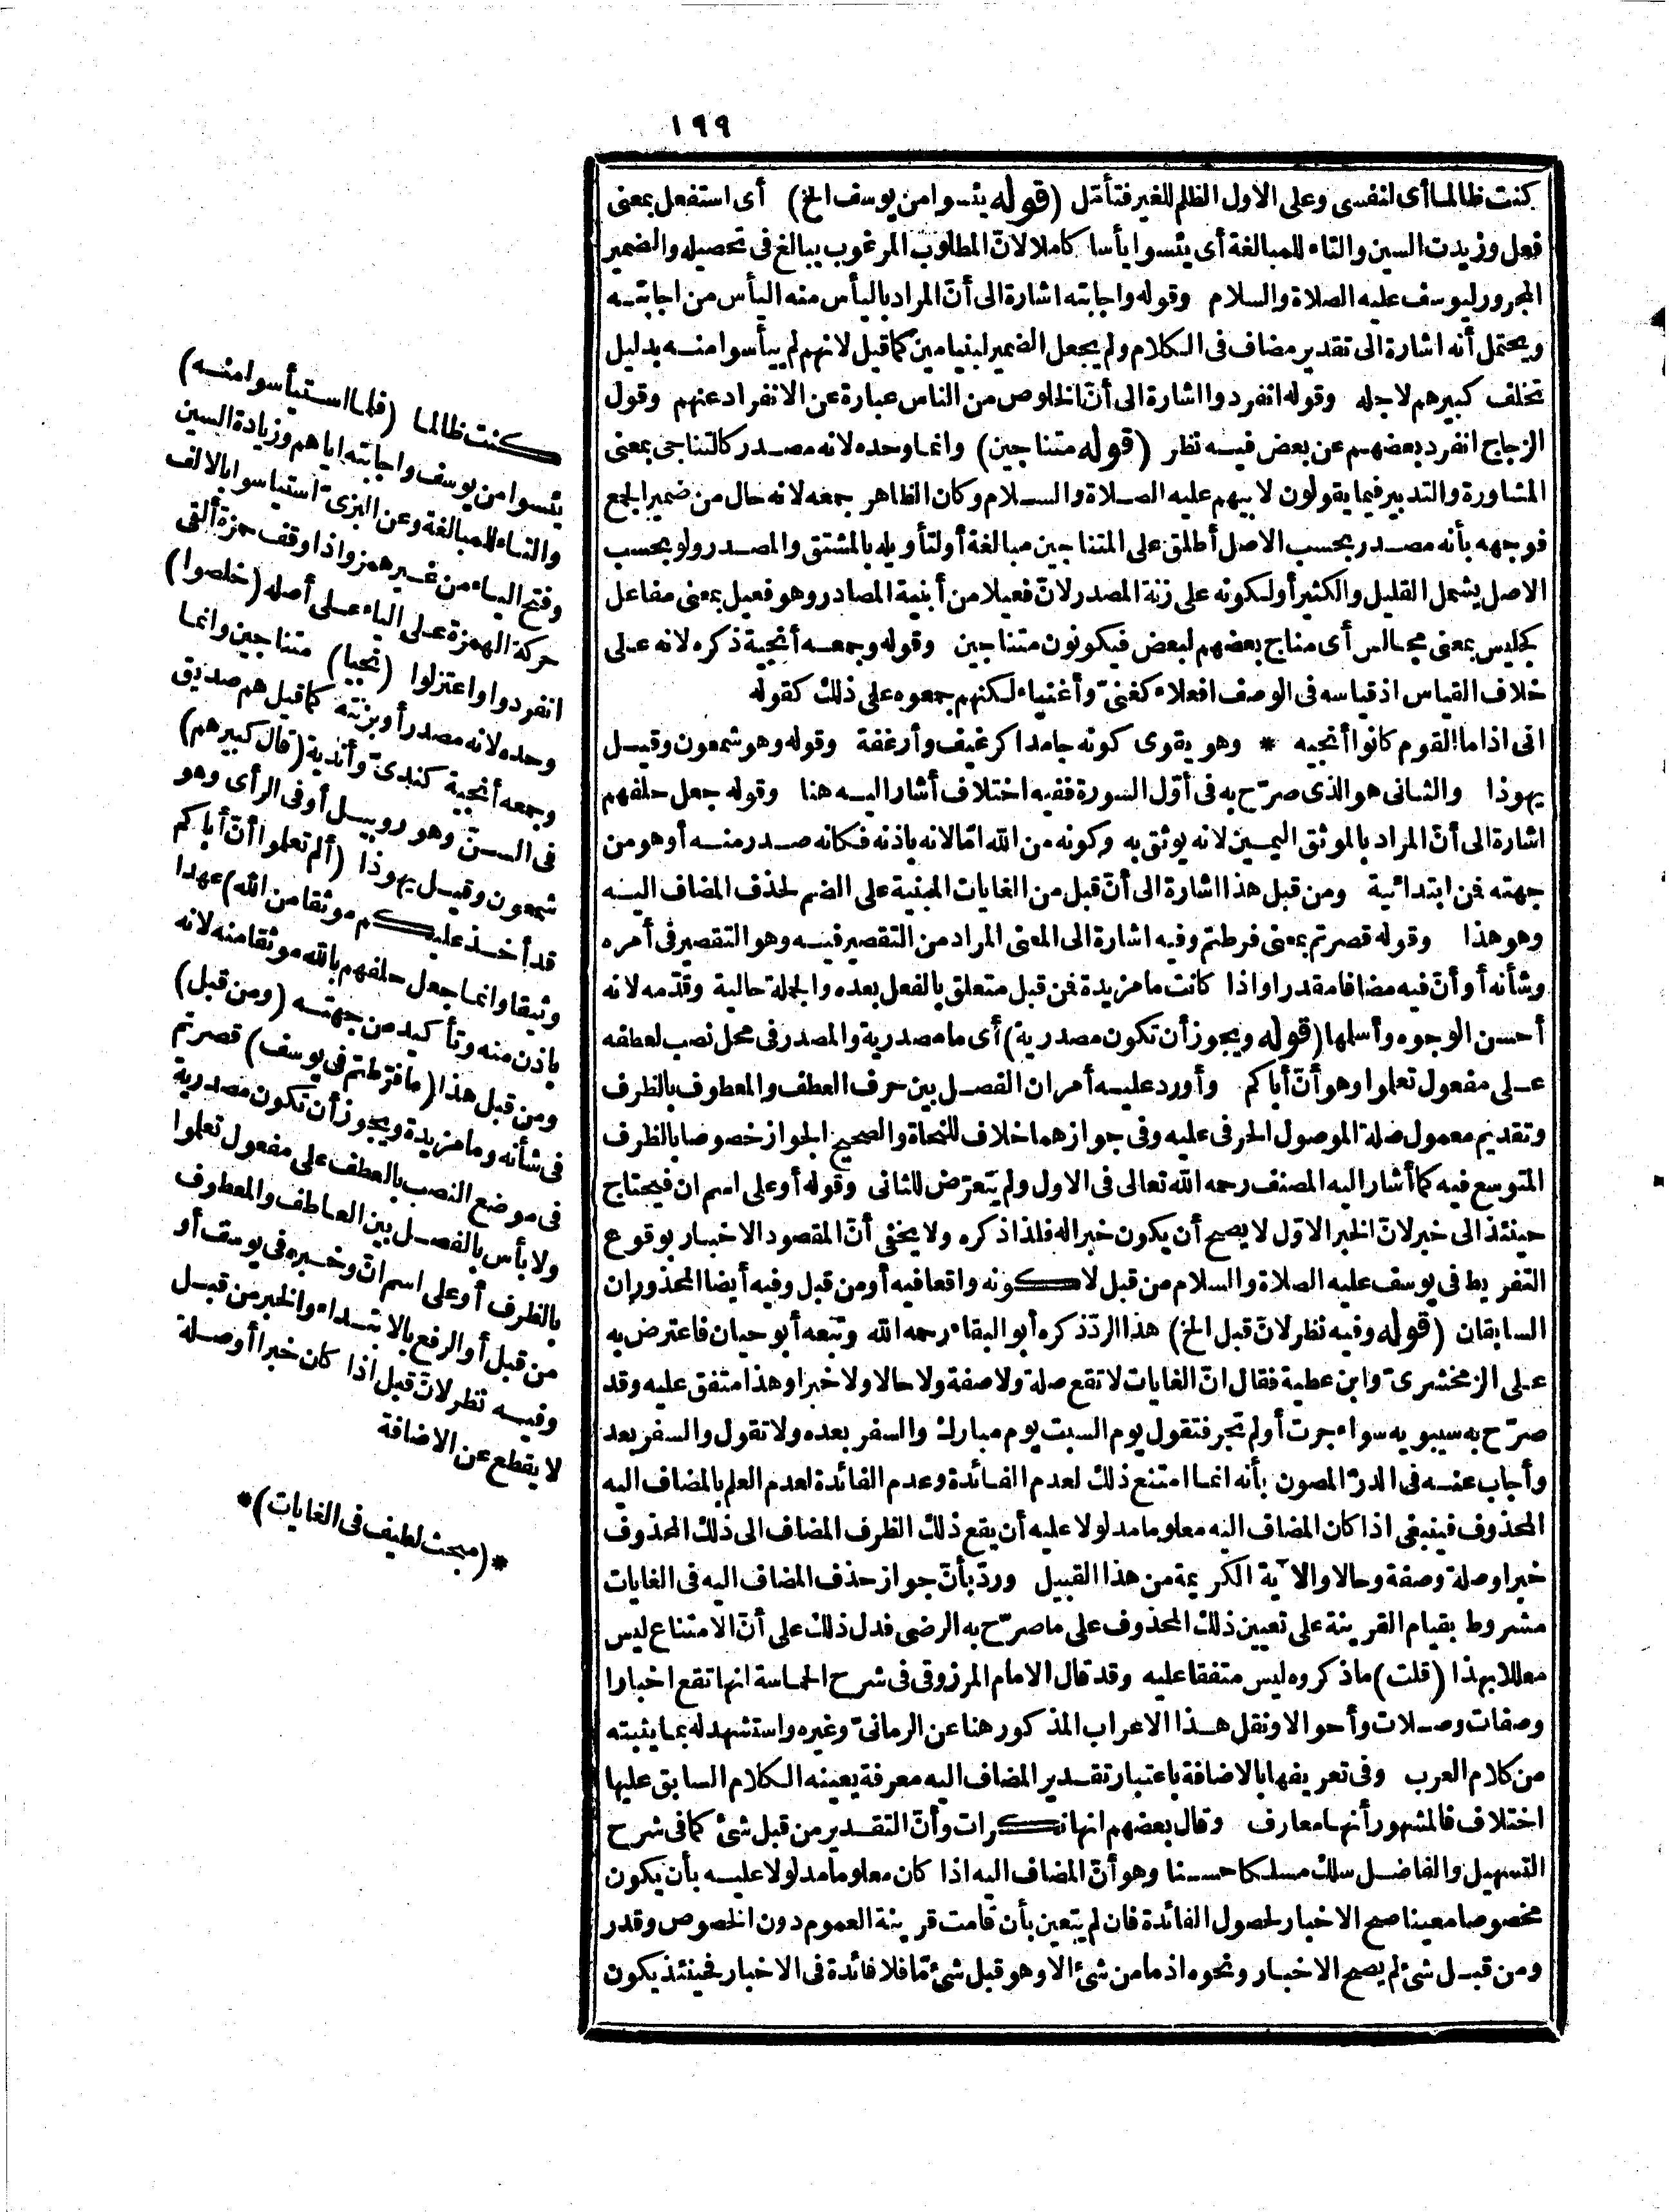 ١٩٩
كنت ظالما أى لنفسى وعلى الاول الظلم للغير فتأمّل (قوله يئسوا من يوسف الخ) أى استفعل بمعنى
فعل وزيدت السين والتاء للمبالغة أى يئسوا يأسا كاملا لانّ المطلوب المرغوب يبالغ فى تحصيله والضمير
المجرور ليوسف عليه الصلاة والسلام وقوله واجابته اشارة الى أنّ المراد باليأس منه اليأس من اجابته
ويحتمل أنه اشارة الى تقدير مضاف فى الكلام ولم يجعل الضمير لبنيامين كما قيل لانهم لم ييأسوا منه بدليل
تخلف كبيرهم لاجله وقوله انفردوا اشارة الى أنّ الخلوص من الناس عبارة عن الانفراد عنهم وقول
الزجاج انفرد بعضهم عن بعض فيه نظر (قوله متناجين) وانما وحده لانه مصدر كالتناجى بمعنى
المشاورة والتدبير فيما يقولون لابيهم عليه الصلاة والسلام وكان الظاهر جمعه لانه حال من ضمير الجمع
فوجهه بأنه مصدر بحسب الاصل أطلق على المتناجين مبالغة أولتأويله بالمشتق والمصدر ولو بحسب
الاصل يشمل القليل والكثير أولكونه على زنة المصدر لانّ فعيلا من أبنية المصادر وهو فعيل بمعنى مفاعل
كجليس بمعنى مجالس أى مناج بعضهم لبعض فيكونون متناجين وقوله وجمعه أنجية ذكره لانه على
خلاف القياس اذ قياسه فى الوصف افعلاء كغنىّ وأغنياء لكنهم جمعوه على ذلك كقوله
انى اذا ما القوم كانوا أنجيه * وهو يقوى كونه جامدا كرغيف وأرغفة وقوله وهو شمعون وقيل
يهوذا والثانى هو الذى صرّح به فى أوّل السورة ففيه اختلاف أشار اليه هنا وقوله جعل حلفهم
اشارة الى أنّ المراد بالموثق اليمين لانه يوثق به وكونه من الله امّا لانه باذنه فكانه صدر منه أو هو من
جهته فمن ابتدائية ومن قبل هذا اشارة الى أنّ قبل من الغايات المبنية على الضم لحذف المضاف اليه
وهو هذا وقوله قصرتم بمعنى فرطتم وفيه اشارة الى المعنى المراد من التقصير فيه وهو التقصير فى أمره
وشأنه أو أنّ فيه مضافا مقدرا واذا كانت ما مزيدة فمن قبل متعلق بالفعل بعده والجملة حالية وقدّمه لانه
أحسن الوجوه وأسلمها (قوله ويجوز أن تكون مصدرية) أى ما مصدرية والمصدر فى محل نصب لعطفه
على مفعول تعلموا وهو أنّ أباكم وأورد عليه أمران الفصل بين حرف العطف والمعطوف بالظرف
وتقديم معمول صلة الموصول الحرفى عليه وفى جوازهما خلاف للنحاة والصحيح الجواز خصوصا بالظرف
المتوسع فيه كما أشار اليه المصنف رحمه الله تعالى فى الاول ولم يتعرّض للثانى وقوله أو على اسم ان فيحتاج
حينئذ الى خبر لانّ الخبر الاوّل لا يصح أن يكون خبرا له فلذا ذكره ولا يخفى أنّ المقصود الاخبار بوقوع
التفريط فى يوسف عليه الصلاة والسلام من قبل لا كونه واقعا فيه أومن قبل وفيه أيضا المحذوران
السابقان (قوله وفيه نظر لانّ قبل الخ) هذا الردّ ذكره أبو البقاء رحمه الله وتبعه أبو حيان فاعترض به
على الزمخشرىّ وابن عطية فقال انّ الغايات لا تقع صلة ولا صفة ولا حالا ولا خبرا وهذا متفق عليه وقد
صرّح به سيبويه سواء جرت أولم تجر فتقول يوم السبت يوم مبارك والسفر بعده ولا تقول والسفر بعد
وأجاب عنه فى الدرّ المصون بأنه انما امتنع ذلك لعدم الفائدة وعدم الفائدة لعدم العلم بالمضاف اليه
المحذوف فينبغى اذا كان المضاف اليه معلوما مدلولا عليه أن يقع ذلك الظرف المضاف الى ذلك المحذوف
خبرا وصلة وصفة وحالا والآية الكريمة من هذا القبيل وردّ بأنّ جواز حذف المضاف اليه فى الغايات
مشروط بقيام القرينة على تعيين ذلك المحذوف على ما صرّح به الرضى فدل ذلك على أنّ الامتناع ليس
معللا بهذا (قلت) ما ذكروه ليس متفقا عليه وقد قال الامام المرزوقى فى شرح الحماسة انها تقع اخبارا
وصفات وصلات وأحوالا ونقل هذا الاعراب المذكور هنا عن الرمانىّ وغيره واستشهد له بما يثبته
من كلام العرب وفى تعريفها بالاضافة باعتبار تقدير المضاف اليه معرفة يعينه الكلام السابق عليها
اختلاف فالمشهور أنها معارف وقال بعضهم انها نكرات وأنّ التقدير من قبل شئ كما فى شرح
التسهيل والفاضل سلك مسلكا حسنا وهو أنّ المضاف اليه اذا كان معلوما مدلولا عليه بأن يكون
مخصوصا معينا صح الاخبار لحصول الفائدة فان لم يتعين بأن قامت قرينة العموم دون الخصوص وقدر
ومن قبل شئ لم يصح الاخبار ونحوه اذ ما من شئ الا وهو قبل شئ مّا فلا فائدة فى الاخبار فحينئذ يكون
كنت ظالما (فلما استيأسوا منه)
يئسوا من يوسف واجابته اياهم وزيادة السين
والتاء للمبالغة وعن البزىّ استياسوا بالالف
وفتح الياء من غير همز واذا وقف حمزة ألقى
حركة الهمزة على الياء على أصله (خلصوا)
انفردوا واعتزلوا (نجيا) متناجين وانما
وحده لانه مصدر أو بزنته كما قيل هم صديق
وجمعه أنجية كندىّ وأندية (قال كبيرهم)
فى السنّ وهو روبيل أوفى الرأى وهو
شمعون وقيل يهوذا (ألم تعلموا أنّ أباكم
قد أخذ عليكم موثقا من الله) عهدا
وثيقا وانما جعل حلفهم بالله موثقا منه لانه
باذن منه وتأكيد من جهته (ومن قبل)
ومن قبل هذا (ما فرّطتم فى يوسف) قصرتم
فى شأنه وما مزيدة ويجوز أن تكون مصدرية
فى موضع النصب بالعطف على مفعول تعلموا
ولا بأس بالفصل بين العاطف والمعطوف
بالظرف أو على اسم انّ وخبره فى يوسف أو
من قبل أو الرفع بالابتداء والخبر من قبل
وفيه نظر لانّ قبل اذا كان خبرا أو صلة
لا يقطع عن الاضافة
*(مبحث لطيف فى الغايات)*